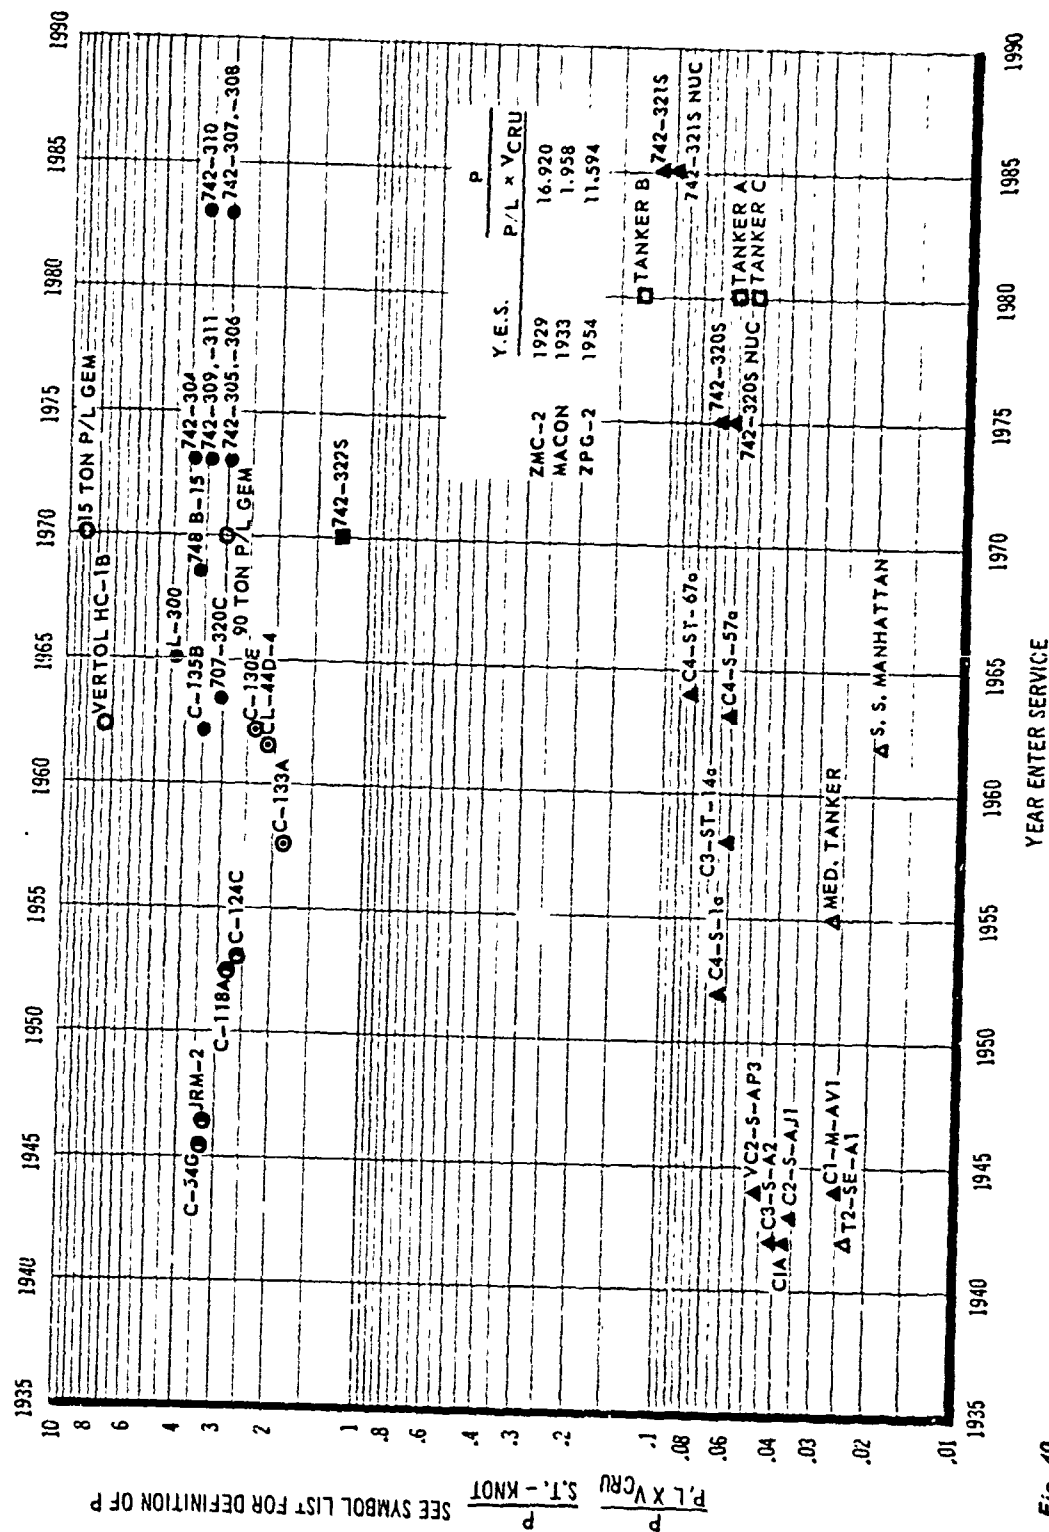 1935 1940 1945 1950 1955 1960 1965 1970 1975 1980 1985 1990
10
8
6
4
3
2
1
.8
.6
.4
.3
.2
.1
.08
.06
.04
.03
.02
.01
SEE SYMBOL LIST FOR DEFINITION OF P
P
S.T. - KNOT
P
P.L X VCRU
15 TON P/L GEM
VERTOL HC-1B
L-300
C-135B
748 B-15
707-320C
90 TON P/L GEM
C-130E
CL-44D-4
C-133A
C-124C
C-118A
JRM-2
C-54G
742-304
742-309,-311
742-305,-306
742-310
742-307,-308
742-322S
Y.E.S. P
P/L x VCRU
ZMC-2 1929 16.920
MACON 1933 1.958
ZPG-2 1954 11.594
TANKER B
742-321S
742-321S NUC
TANKER A
TANKER C
742-320S
742-320S NUC
C4-ST-67a
C4-S-57a
S.S. MANHATTAN
C3-ST-14a
MED. TANKER
C4-S-1a
VC2-S-AP3
C3-S-A2
C2-S-AJ1
C1A
C1-M-AV1
T2-SE-A1
1935 1940 1945 1950 1955 1960 1965 1970 1975 1980 1985 1990
YEAR ENTER SERVICE
Fig. 40